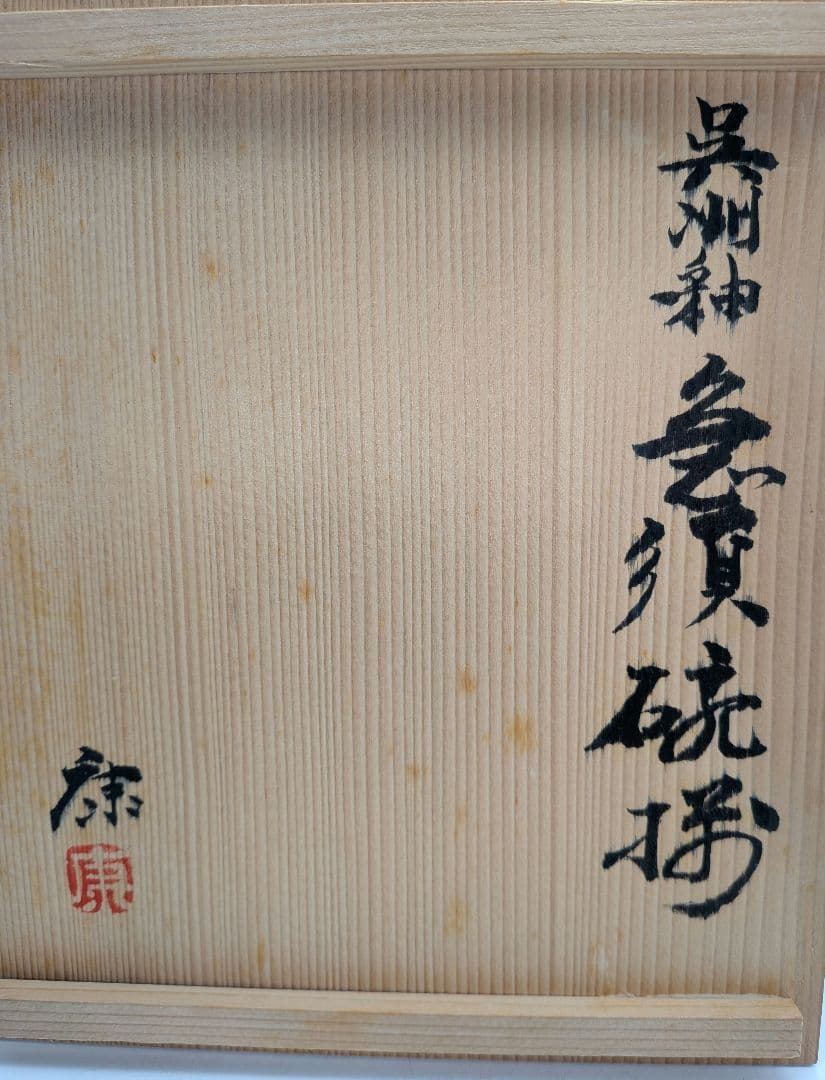 呉洲釉急須碗揃
康
康